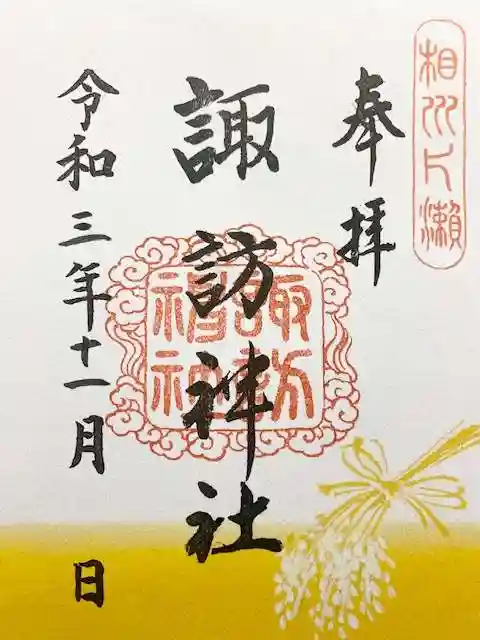 相州片瀬
奉拝
諏訪神社
諏訪神社
令和三年十一月 日